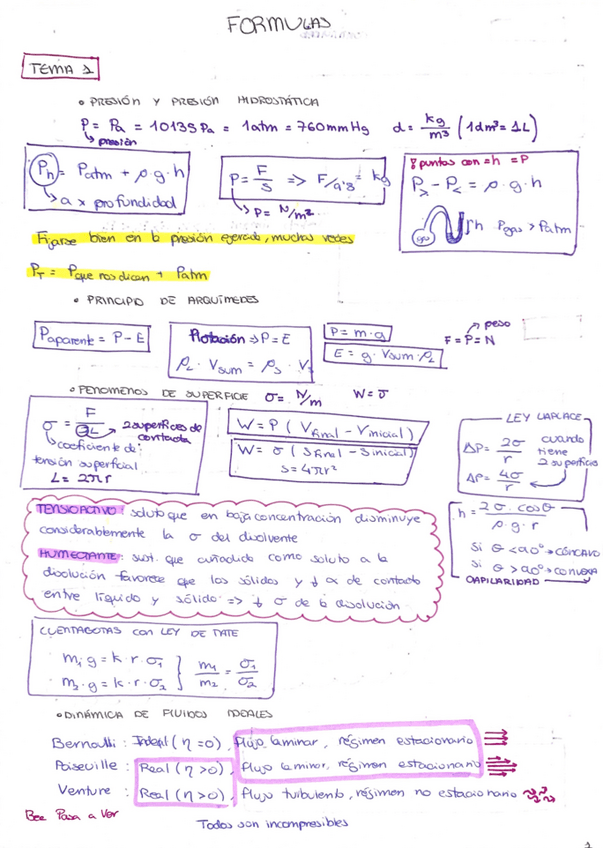 FORMULAS
TEMA 1
• PRESIÓN Y PRESIÓN HIDROSTÁTICA
P = Pa = 10135 Pa = 1 atm = 760 mm Hg    d = kg/m³ (1dm³ = 1L)
↳ presión
Ph = Patm + ρ · g · h
↳ a x profundidad
P = F/S => F/
↳ P = N/m²
8 puntos con = h = P
P> - P< = ρ · g · h
gas h Pgas > Patm
Fijarse bien en la presión ejercida, muchas veces
PT = Pque nos dicen + Patm
• PRINCIPIO DE ARQUÍMEDES
Paparente = P - E
Flotación => P = E
ρL · Vsum = ρs · Vs
P = m · g
E = g · Vsum · ρL
F = P = N → peso
• FENOMENOS DE SUPERFICIE σ = N/m W = J
σ = F/2L → 2 superficies de contacto
↳ coeficiente de tensión superficial
L = 2πr
W = P (Vfinal - Vinicial)
W = σ (Sfinal - Sinicial)
S = 4πr²
LEY LAPLACE
ΔP = 2σ/r
ΔP = 4σ/r ← cuando tiene 2 superficies
h = 2σ · cosθ / ρ · g · r
Si θ < 90° → CÓNCAVO
Si θ > 90° → CONVEXA
CAPILARIDAD
TENSIOACTIVO: soluto que en baja concentración disminuye
considerablemente la σ del disolvente
HUMECTANTE: sust. que añadida como soluto a la
disolución favorece que los sólidos y ↓ α de contacto
entre líquido y sólido => ↓ σ de la disolución.
CUENTAGOTAS con LEY DE TATE
m₁ g = k · r · σ₁
m₂ · g = k · r · σ₂ } m₁/m₂ = σ₁/σ₂
• DINÁMICA DE FLUIDOS IDEALES
Bernoulli : Ideal (η = 0), flujo laminar, régimen estacionario
Poiseville : Real (η > 0), flujo laminar, régimen estacionario
Venture : Real (η > 0), flujo turbulento, régimen no estacionario
Bee Pasa a Ver
Todos son incompresibles
1